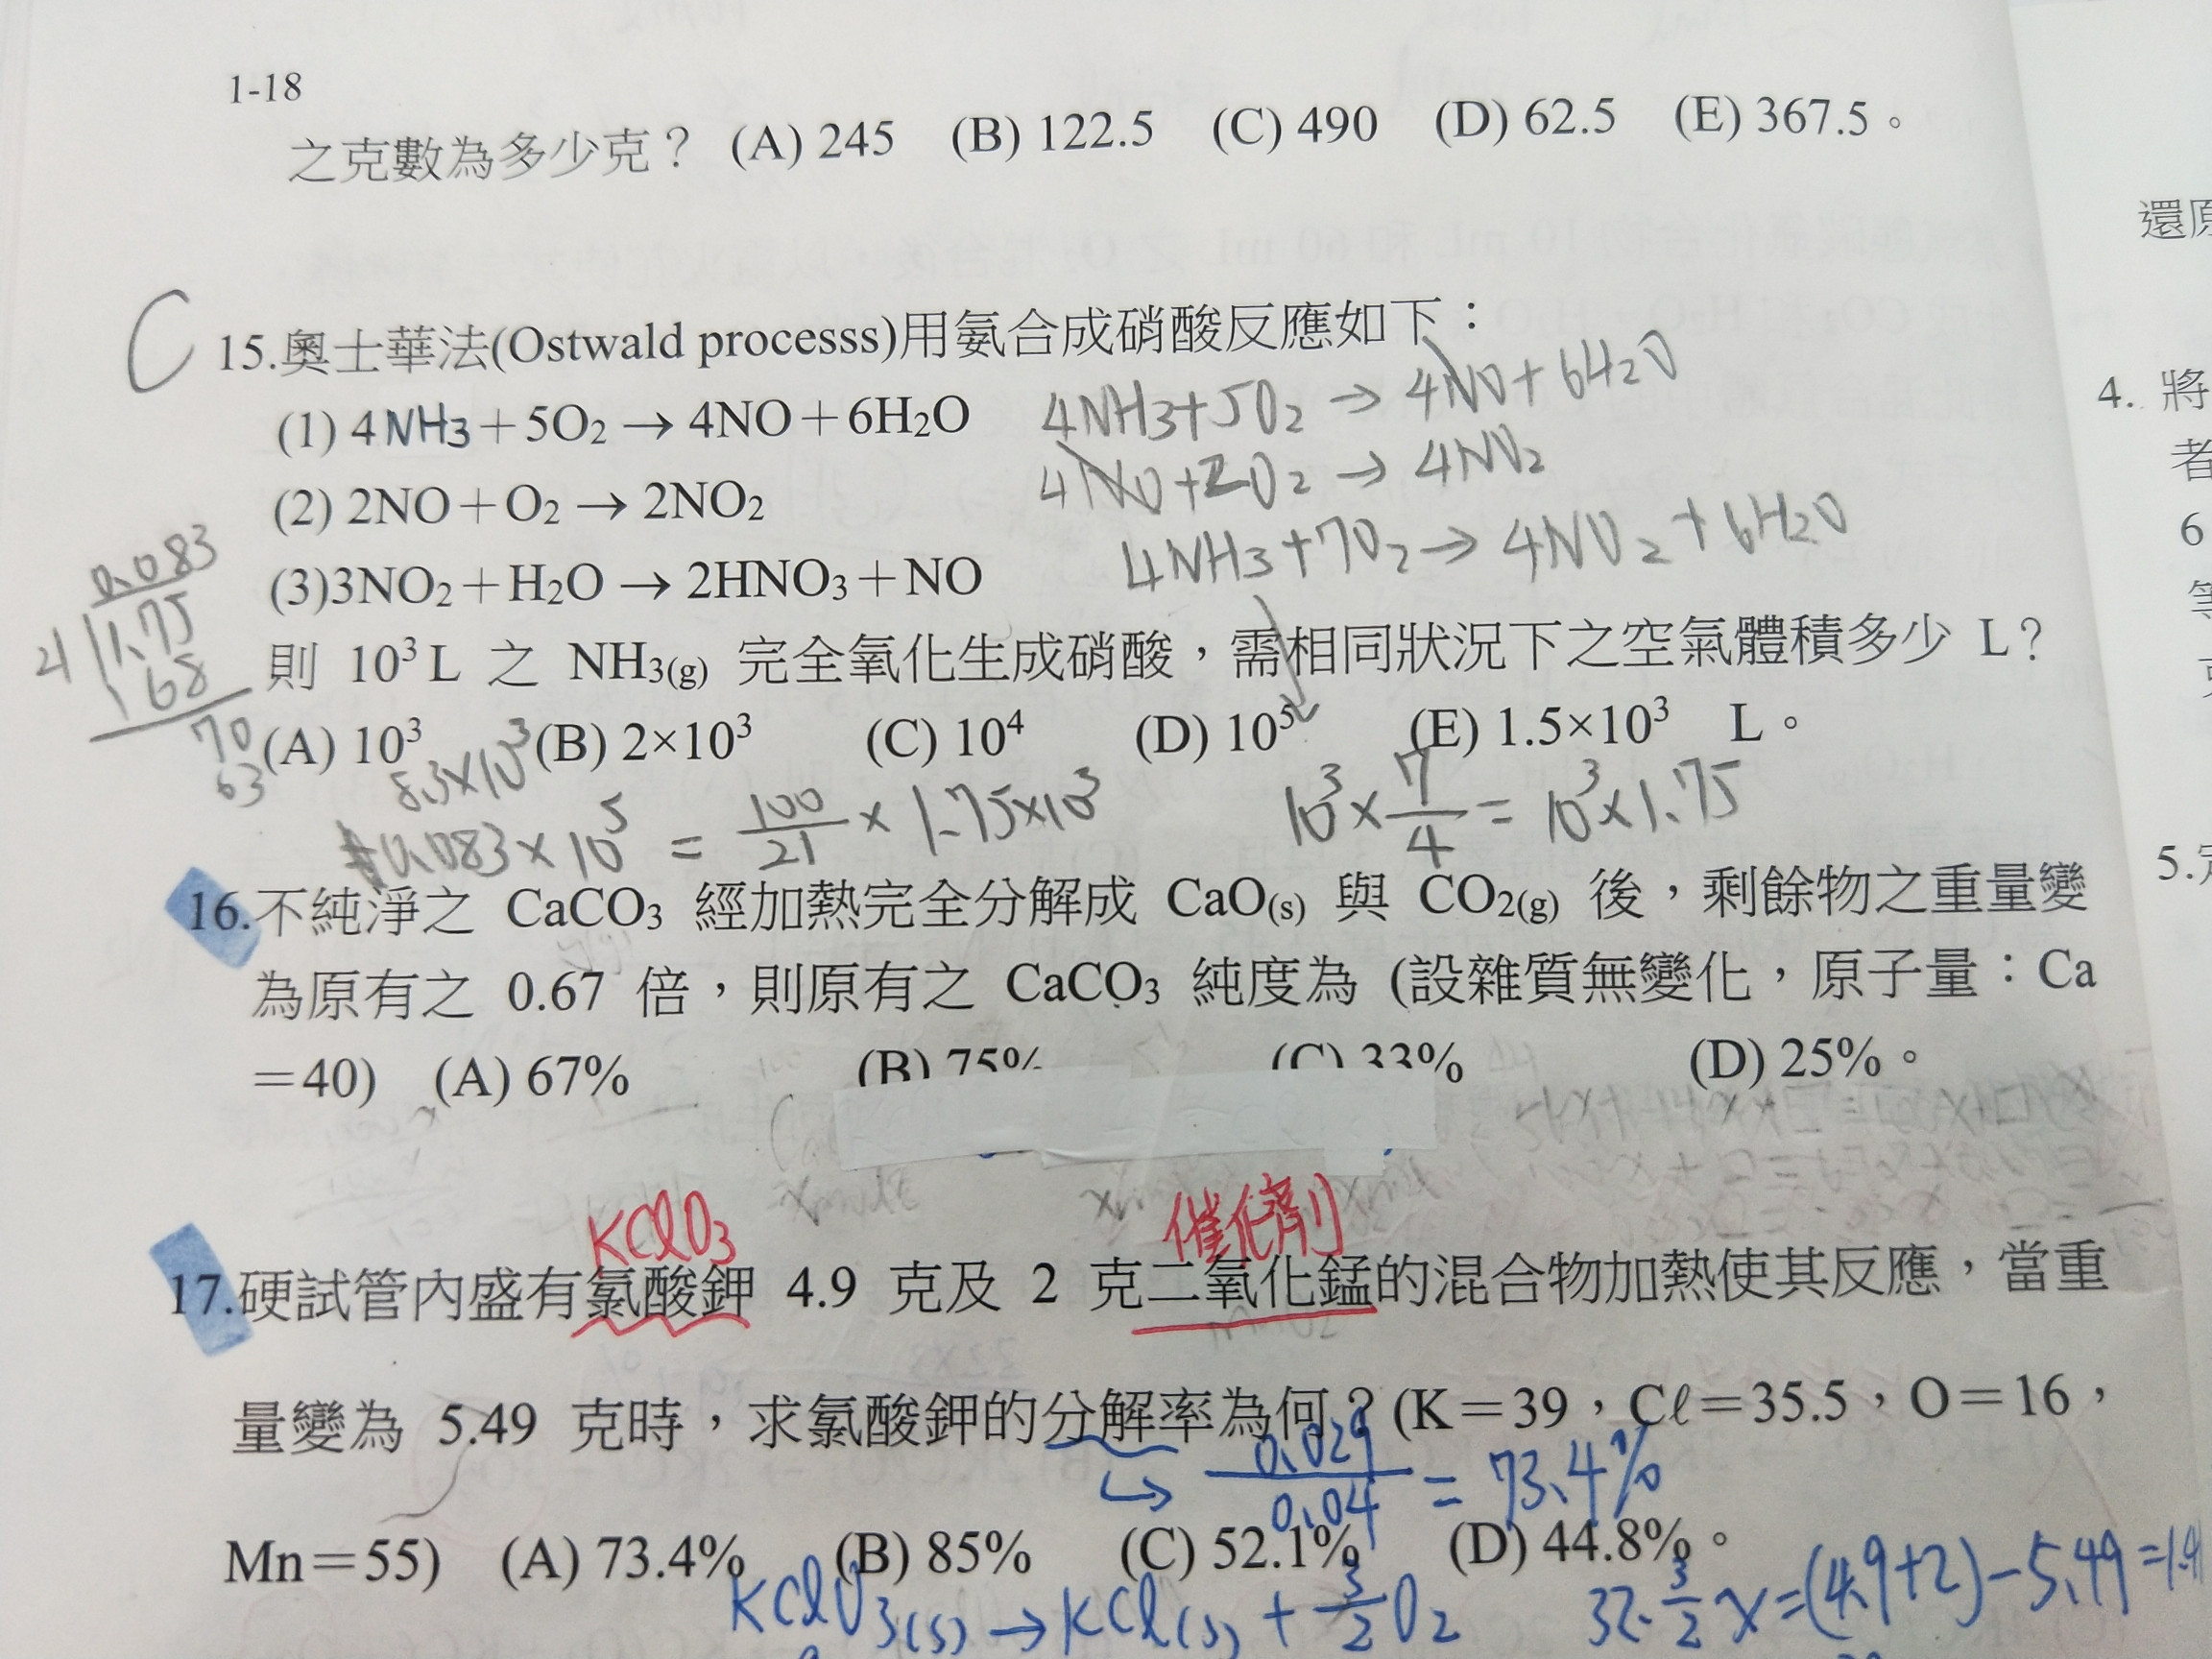 1-18
之克數為多少克？ (A) 245 (B) 122.5 (C) 490 (D) 62.5 (E) 367.5。
還原
C
15.奧士華法(Ostwald processs)用氨合成硝酸反應如下：
(1) 4NH3＋5O2 → 4NO＋6H2O
4NH3+5O2 → 4NO+6H2O
(2) 2NO＋O2 → 2NO2
4NO+2O2 → 4NO2
(3)3NO2＋H2O → 2HNO3＋NO
4NH3+7O2 → 4NO2+6H2O
則 10³ L 之 NH3(g) 完全氧化生成硝酸，需相同狀況下之空氣體積多少 L？
(A) 10³ (B) 2×10³ (C) 10⁴ (D) 10⁵ (E) 1.5×10³ L。
0.083
21 1.75
168
70
63
8.3×10³
0.083×10⁵ = 100/21 × 1.75×10³
10³×7/4 = 10³×1.75
16.不純淨之 CaCO3 經加熱完全分解成 CaO(s) 與 CO2(g) 後，剩餘物之重量變
為原有之 0.67 倍，則原有之 CaCO3 純度為 (設雜質無變化，原子量：Ca
＝40) (A) 67% (B) 75% (C) 33% (D) 25%。
KClO3
催化劑
17.硬試管內盛有氯酸鉀 4.9 克及 2 克二氧化錳的混合物加熱使其反應，當重
量變為 5.49 克時，求氯酸鉀的分解率為何？(K＝39，Cℓ＝35.5，O＝16，
0.029/0.04 = 73.4%
Mn＝55) (A) 73.4% (B) 85% (C) 52.1% (D) 44.8%。
KClO3(s) → KCl(s) + 3/2 O2
32·3/2 x=(4.9+2)-5.49=1.41
4. 將
者
6
等
5.